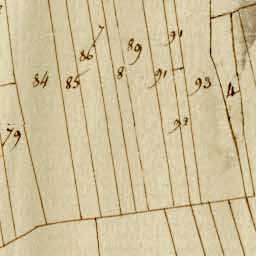 91
89
86
84
85
8
91
93
4
93
79